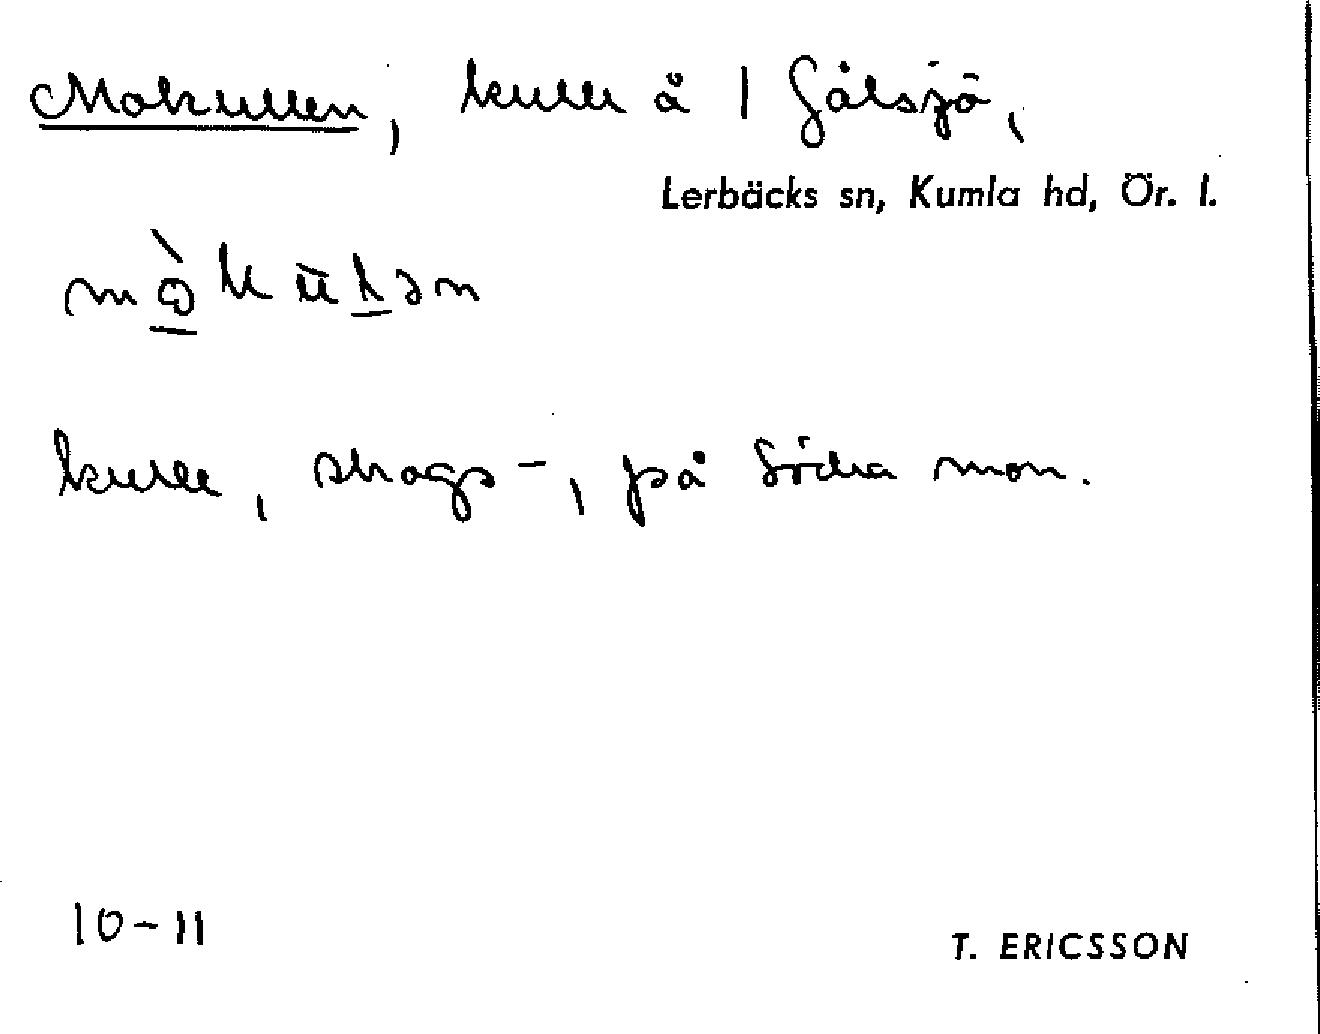 Mokullen, kulle å 1 Gålsjö,
Lerbäcks sn, Kumla hd, Ör. l.
kulle, skogs-, på Södra mon.
10-11
T. ERICSSON